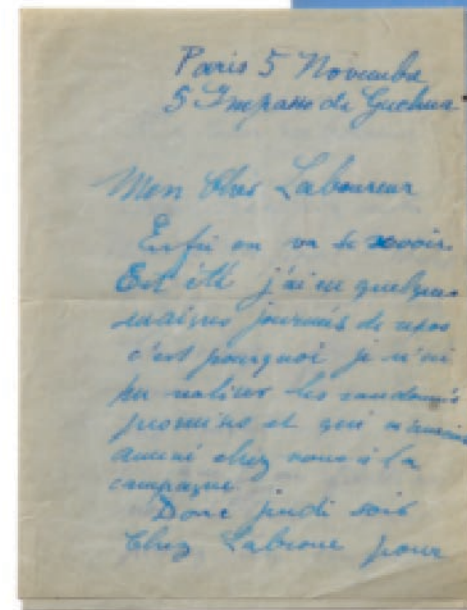 Paris 5 Novembre
5 Impasse de Guelma
Mon Cher Laboureur
Enfin on va se revoir
Cet été j'ai eu quelques
maigres journées de repos
c'est pourquoi je n'ai
pu réaliser les randonnées
promises et qui m'aurait
amené chez vous à la
campagne
Donc jeudi soir
Chez pour